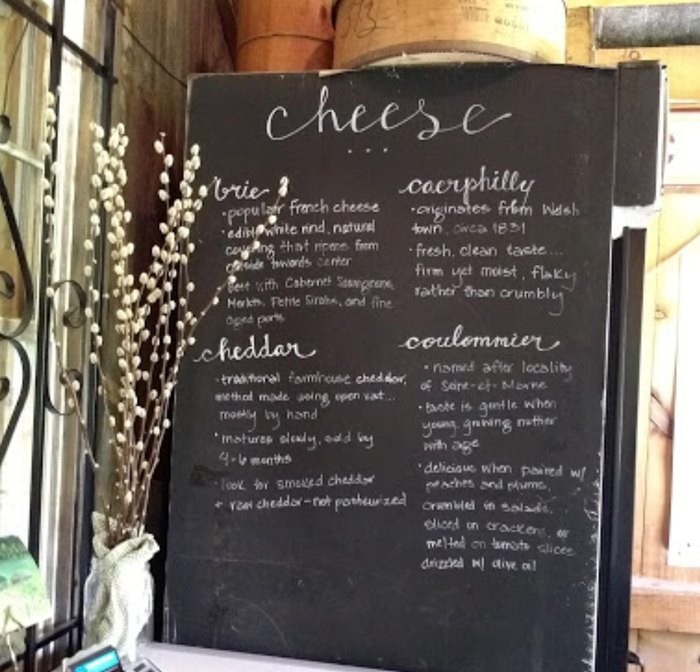 cheese
...
brie
• popular french cheese
• edible white rind, natural
covering that ripens from
outside towards center
Best with Cabernet Sauvignon,
Merlots, Petite Sirahs, and fine
aged ports
cheddar
• traditional farmhouse cheddar,
method made using open vat...
mostly by hand
• matures slowly, sold by
4-6 months
• look for smoked cheddar
+ raw cheddar - not pasteurized
caerphilly
• originates from Welsh
town, circa 1831
• fresh, clean taste...
firm yet moist, flaky
rather than crumbly
coulommier
• named after locality
of Seine-et-Marne
• taste is gentle when
young, growing nuttier
with age
• delicious when paired w/
peaches and plums,
crumbled in salads,
sliced on crackers, or
melted on tomato slices
drizzled w/ olive oil